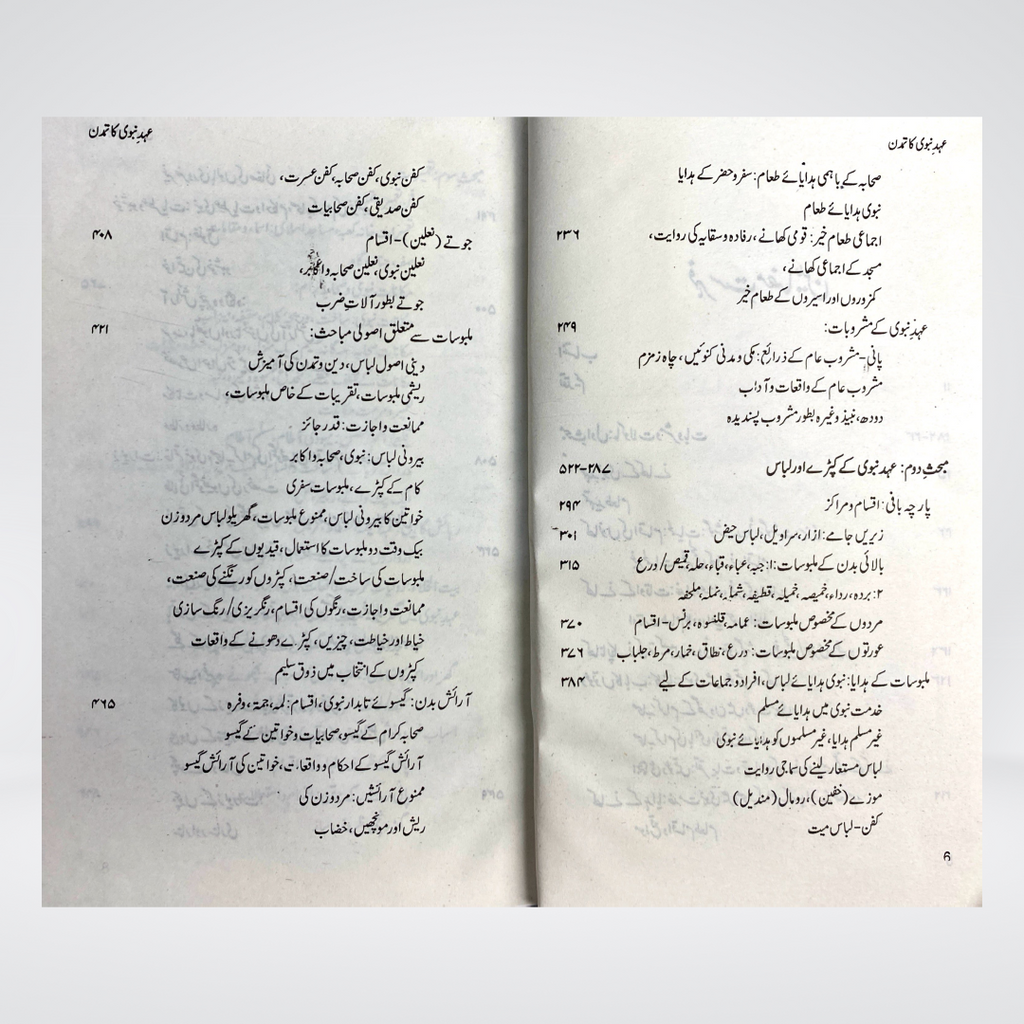 عہدِ نبوی کا تمدن
صحابہ کے باہمی ہدایائے طعام: سفر و حضر کے ہدایا
نبوی ہدایائے طعام
اجماعی طعام خیر: قومی کھانے، رفادہ و سقایہ کی روایت، ۲۳۶
مسجد کے اجماعی کھانے،
کمزوروں اور اسیروں کے طعام خیر
عہد نبوی کے مشروبات: ۲۴۹
پانی-مشروب عام کے ذرائع: مکی و مدنی کنوئیں، چاہ زمزم
مشروب عام کے واقعات و آداب
دودھ، نبیذ وغیرہ بطور مشروب پسندیدہ
مبحثِ دوم: عہد نبوی کے کپڑے اور لباس ۲۸۷-۵۲۲
پارچہ بافی: اقسام و مراکز ۲۹۴
زیریں جامے: ازار، سراویل، لباس حیض ۳۰۱
بالائی بدن کے ملبوسات: ۱: جبہ، عباء، قباء، حلہ، قمیص/درع ۳۱۵
۲: بردہ، رداء، خمیصہ، خمیلہ، قطیفہ، شملہ، نملہ، ملحفہ
مردوں کے مخصوص ملبوسات: عمامہ، قلنسوہ، برنس-اقسام ۳۷۰
عورتوں کے مخصوص ملبوسات: درع، نطاق، خمار، مرط، جلباب ۳۷۶
ملبوسات کے ہدایا: نبوی ہدایائے لباس، افراد و جماعات کے لیے ۳۸۴
خدمت نبوی میں ہدایائے مسلم
غیر مسلم ہدایا، غیر مسلموں کو ہدایائے نبوی
لباس مستعار لینے کی سماجی روایت
موزے (خفین)، رومال (مندیل)
کفن-لباس میت
6
عہدِ نبوی کا تمدن
کفن نبوی، کفن صحابہ، کفن عسرت،
کفن صدیقی، کفن صحابیات
جوتے (نعلین)-اقسام ۴۰۸
نعلین نبوی، نعلین صحابہ و اکابر،
جوتے بطور آلاتِ ضرب
ملبوسات سے متعلق اصولی مباحث: ۴۲۱
دینی اصول لباس، دین و تمدن کی آمیزش
ریشمی ملبوسات، تقریبات کے خاص ملبوسات،
ممانعت و اجازت: قدر جائز
بیرونی لباس: نبوی، صحابہ و اکابر
کام کے کپڑے، ملبوسات سفری
خواتین کا بیرونی لباس، ممنوع ملبوسات، گھریلو لباس مرد و زن
بیک وقت دو ملبوسات کا استعمال، قیدیوں کے کپڑے
ملبوسات کی ساخت/صنعت، کپڑوں کو رنگنے کی صنعت،
ممانعت و اجازت، رنگوں کی اقسام، رنگریزی/رنگ سازی
خیاط اور خیاطت، چیزیں، کپڑے دھونے کے واقعات
کپڑوں کے انتخاب میں ذوق سلیم
آرائش بدن: گیسوئے تابدار نبوی، اقسام: لمہ، جمۃ، وفرہ ۴۶۵
صحابہ کرام کے گیسو، صحابیات و خواتین کے گیسو
آرائش گیسو کے احکام و واقعات، خواتین کی آرائش گیسو
ممنوع آرائشیں: مرد و زن کی
ریش اور مونچھیں، خضاب